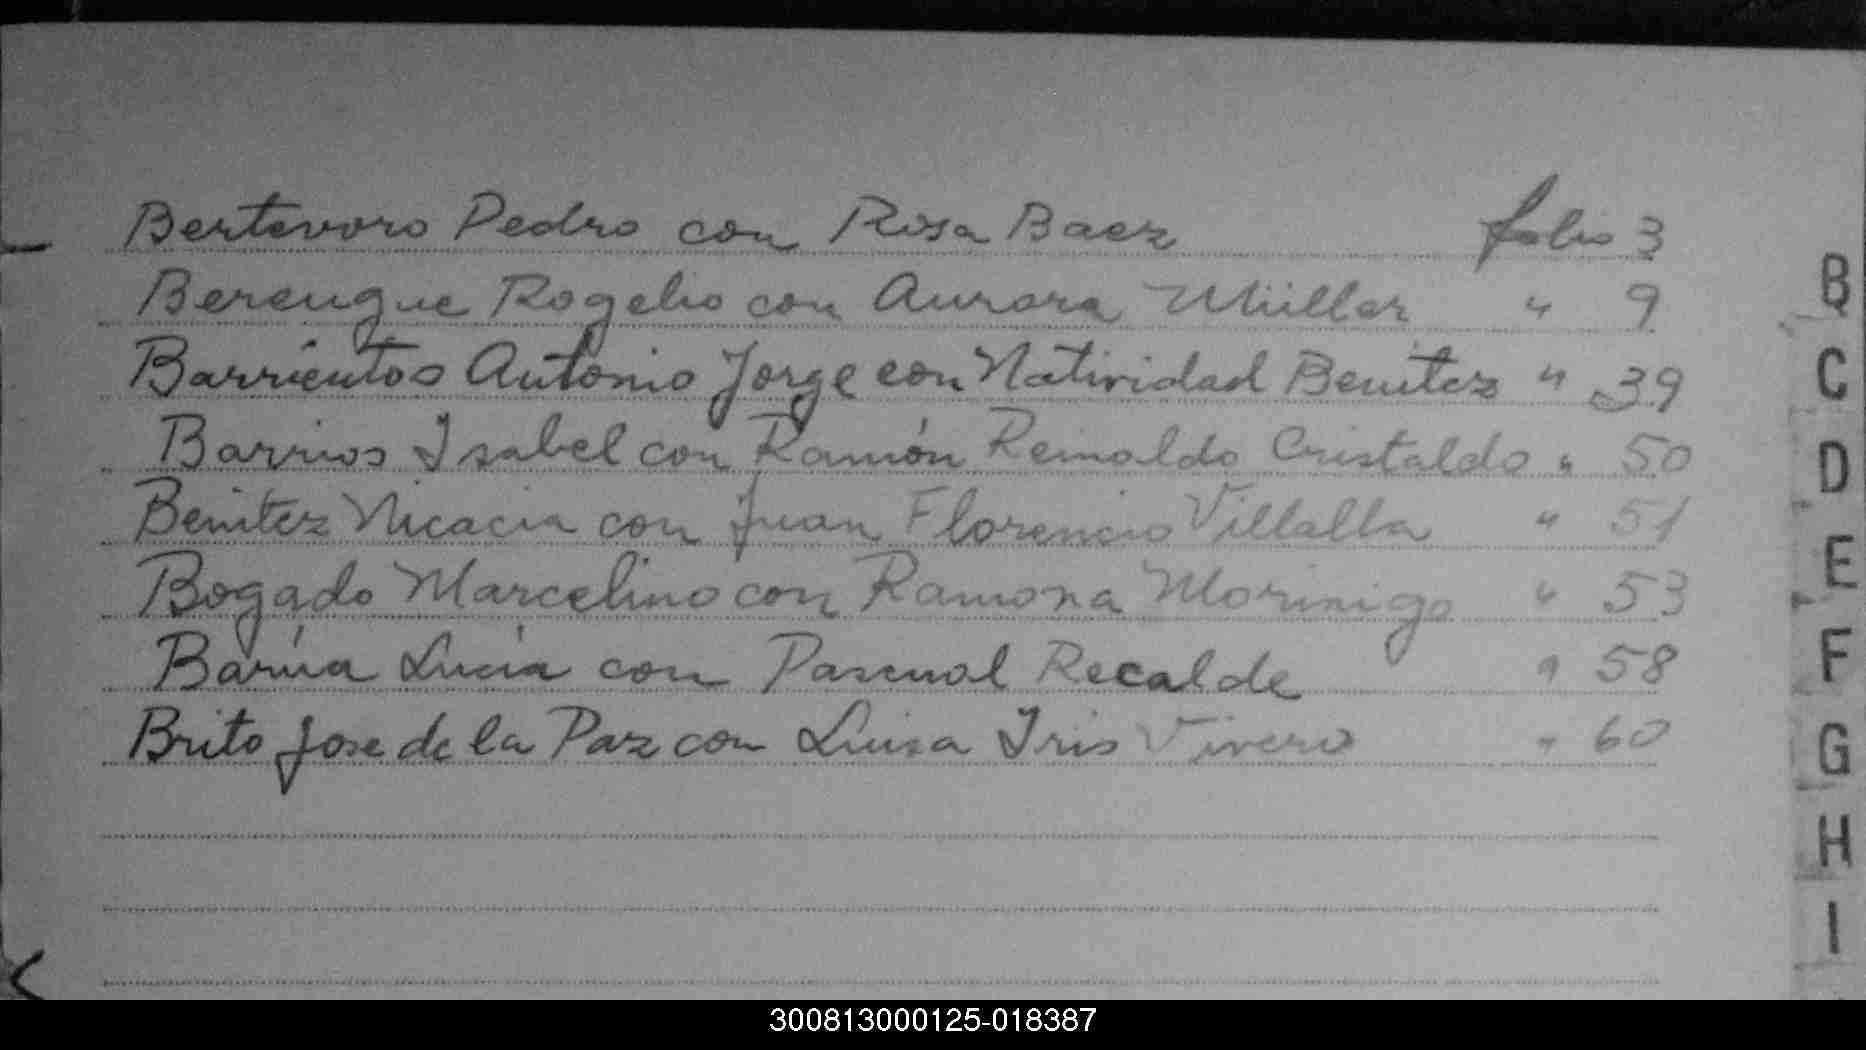 Bertevoro Pedro con Rosa Baez folio 3
Berengue Rogelio con Aurora Müller " 9
Barrientos Antonio Jorge con Natividad Benitez " 39
Barrios Isabel con Ramón Reinaldo Cristaldo " 50
Benitez Nicacia con Juan Florencio Villalba " 51
Bogado Marcelino con Ramona Morinigo " 53
Barúa Lucía con Pascual Recalde " 58
Brito Jose de la Paz con Luisa Iris Vivero " 60
B
C
D
E
F
G
H
I
300813000125-018387